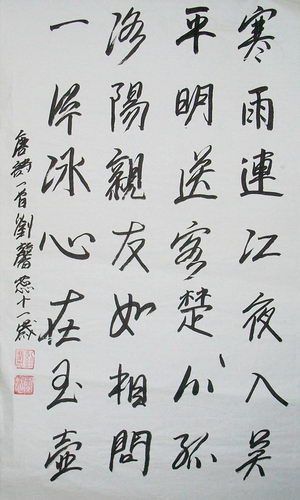 寒雨連江夜入吴
平明送客楚山孤
洛陽親友如相問
一片冰心在玉壺
唐詩一首劉馨蕊十一歲